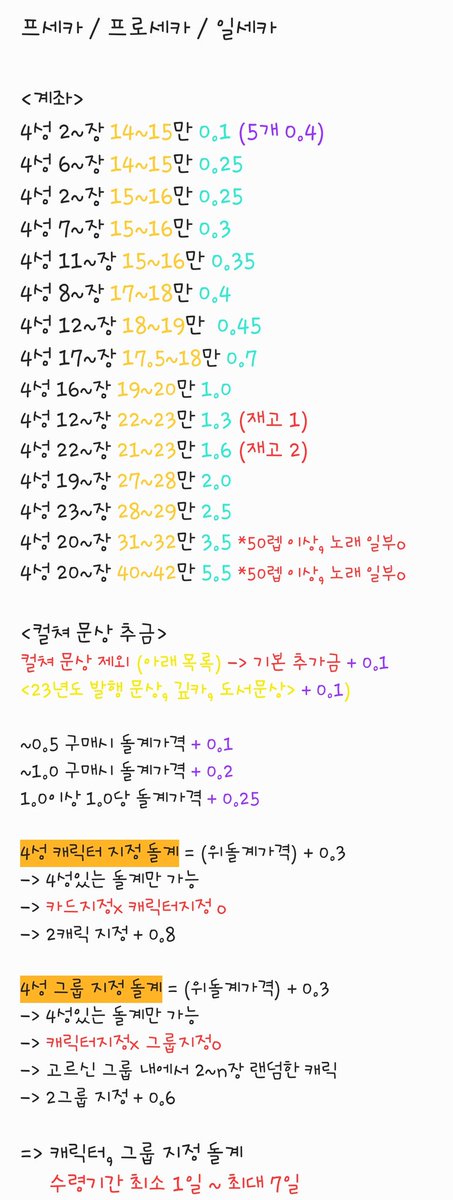 프세카 / 프로세카 / 일세카
<계좌>
4성 2~장 14~15만 0.1 (5개 0.4)
4성 6~장 14~15만 0.25
4성 2~장 15~16만 0.25
4성 7~장 15~16만 0.3
4성 11~장 15~16만 0.35
4성 8~장 17~18만 0.4
4성 12~장 18~19만 0.45
4성 17~장 17.5~18만 0.7
4성 16~장 19~20만 1.0
4성 12~장 22~23만 1.3 (재고 1)
4성 22~장 21~23만 1.6 (재고 2)
4성 19~장 27~28만 2.0
4성 23~장 28~29만 2.5
4성 20~장 31~32만 3.5 *50렙 이상, 노래 일부o
4성 20~장 40~42만 5.5 *50렙 이상, 노래 일부o
<컬쳐 문상 추금>
컬쳐 문상 제외 (아래 목록) -> 기본 추가금 + 0.1
<23년도 발행 문상, 깊카, 도서문상> + 0.1)
~0.5 구매시 돌계가격 + 0.1
~1.0 구매시 돌계가격 + 0.2
1.0이상 1.0당 돌계가격 + 0.25
4성 캐릭터 지정 돌계 = (위돌계가격) + 0.3
-> 4성있는 돌계만 가능
-> 카드지정x 캐릭터지정 o
-> 2캐릭 지정 + 0.8
4성 그룹 지정 돌계 = (위돌계가격) + 0.3
-> 4성있는 돌계만 가능
-> 캐릭터지정x 그룹지정o
-> 고르신 그룹 내에서 2~n장 랜덤한 캐릭
-> 2그룹 지정 + 0.6
=> 캐릭터, 그룹 지정 돌계
수령기간 최소 1일 ~ 최대 7일